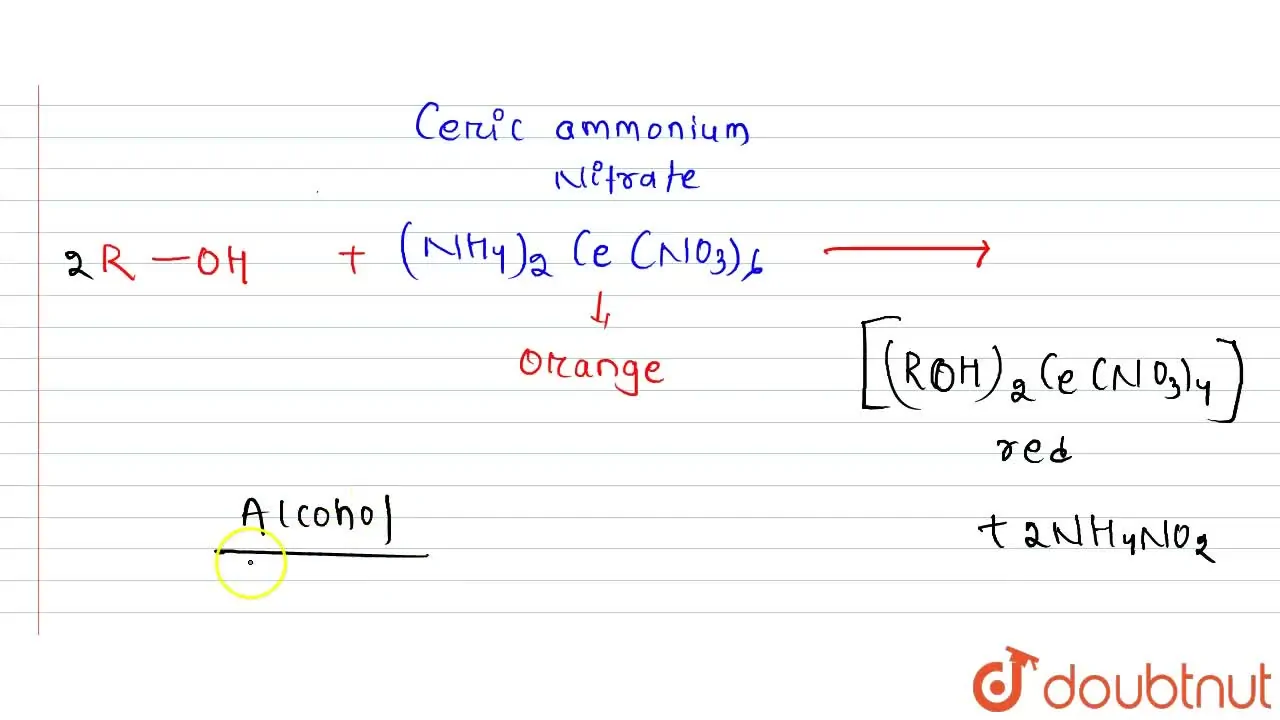 Ceric ammonium
Nitrate
2 R — OH + (NH4)2 Ce (NO3)6 ⟶
↓
Orange
[(ROH)2 Ce (NO3)4]
red
Alcohol
+ 2NH4NO2
doubtnut